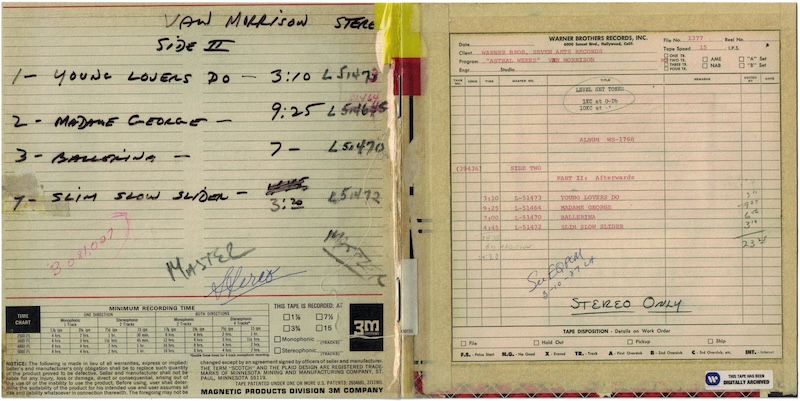 VAN MORRISON STEREO
SIDE II
1- YOUNG LOVERS DO - 3:10 L51473
2- MADAME GEORGE - 9:25
3- BALLERINA - 7- L51470
4- SLIM SLOW SLIDER - 3:20 L51472
MASTER
Stereo
MASTER
TIME CHART
MINIMUM RECORDING TIME
ONE DIRECTION
BOTH DIRECTIONS
Monophonic 1 Track
Stereophonic 2 Tracks
THIS TAPE IS RECORDED: AT
1⅞ 7½
3¾ 15
Monophonic (TRACKS)
Stereophonic (TRACKS)
3M COMPANY
NOTICE: The following is made in lieu of all warranties, express or implied:
Seller's and manufacturer's only obligation shall be to replace such quantity
of the product proved to be defective. Seller and manufacturer shall not be
liable for any injury, loss or damage, direct or consequential, arising out of
the use of or the inability to use the product. Before using, user shall deter-
mine the suitability of the product for his intended use and user assumes all
risk and liability whatsoever in connection therewith. The foregoing may not be
changed except by an agreement signed by officers of seller and manufacturer.
THE TERM "SCOTCH" AND THE PLAID DESIGN ARE REGISTERED TRADE-
MARKS OF MINNESOTA MINING AND MANUFACTURING COMPANY, ST.
PAUL, MINNESOTA 55119.
MAGNETIC PRODUCTS DIVISION 3M COMPANY
WARNER BROTHERS RECORDS, INC.
6000 Sunset Blvd., Hollywood, Calif.
File No. 1377 Reel No.
Date
Client WARNER BROS. SEVEN ARTS RECORDS
Tape Speed 15 I.P.S.
Program "ASTRAL WEEKS" VAN MORRISON
Engr. Studio
ONE TR.
TWO TR. AME "A" Set
THREE TR. NAB "B" Set
FOUR TR.
TAKE NO. CODE TIME MASTER NO. TITLE REMARKS DATE
LEVEL SET TONES
1KC at 0-Db
10KC at
ALBUM WS-1768
(39636) SIDE TWO
PART II: Afterwards
3:10 L-51473 YOUNG LOVERS DO
9:25 L-51464 MADAME GEORGE
7:00 L-51470 BALLERINA
L-51472 SLIM SLOW SLIDER
STEREO ONLY
TAPE DISPOSITION - Details on Work Order
File Hold Out Pickup Ship
F.S. - False Start N.G. - No Good X - Entered TR. - Track A - First Overdub B - 2nd Overdub C - 3rd Overdub, etc. INT. - Intercut
THIS TAPE HAS BEEN
DIGITALLY ARCHIVED